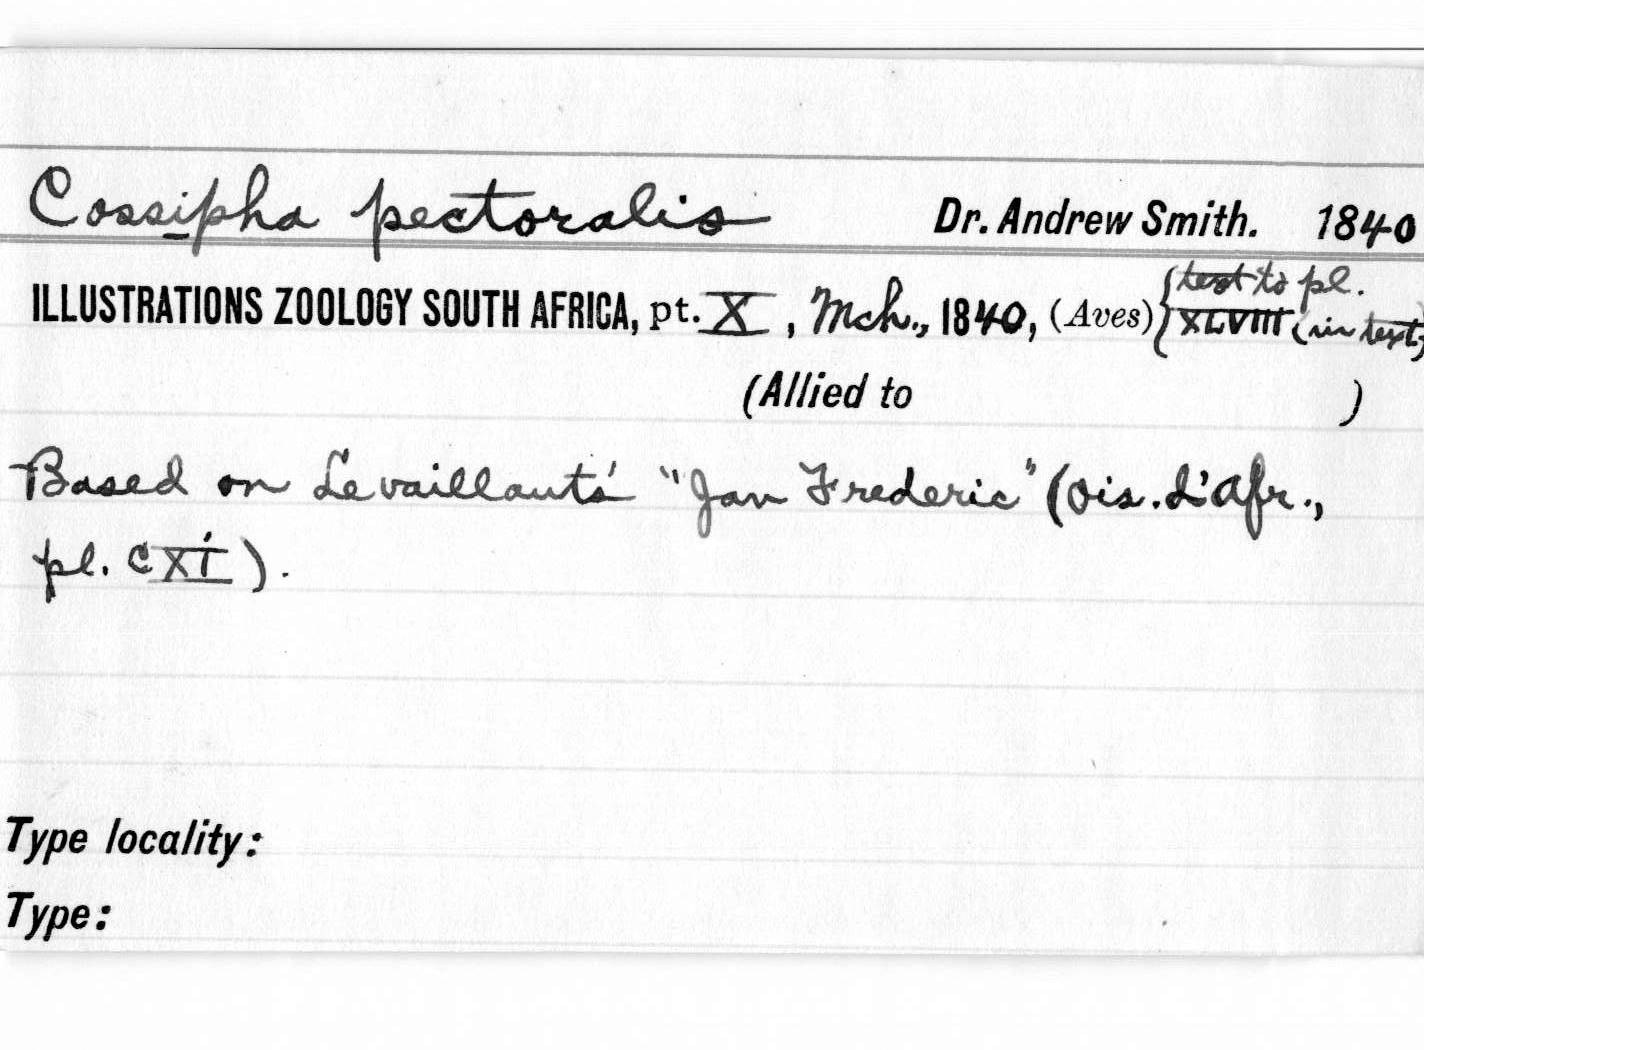 Cossipha pectoralis Dr. Andrew Smith. 1840
ILLUSTRATIONS ZOOLOGY SOUTH AFRICA, pt. X, Mch., 1840, (Aves) {text to pl.
XLVIII (in text)
(Allied to )
Based on Levaillants' "Jan Frederic" (Ois. d'Afr.,
pl. CXI).
Type locality:
Type: